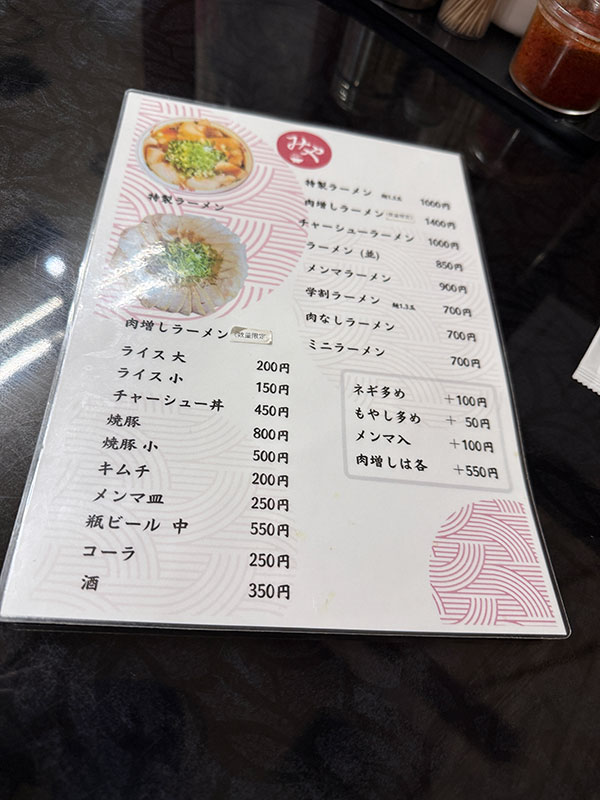 みや
特製ラーメン
肉増しラーメン 数量限定
ライス 大 200円
ライス 小 150円
チャーシュー丼 450円
焼豚 800円
焼豚 小 500円
キムチ 200円
メンマ皿 250円
瓶ビール 中 550円
コーラ 250円
酒 350円
特製ラーメン 麺1.5玉 1000円
肉増しラーメン 数量限定 1400円
チャーシューラーメン 1000円
ラーメン (並) 850円
メンマラーメン 900円
学割ラーメン 麺1.5玉 700円
肉なしラーメン 700円
ミニラーメン 700円
ネギ多め +100円
もやし多め + 50円
メンマ入 +100円
肉増しは各 +550円